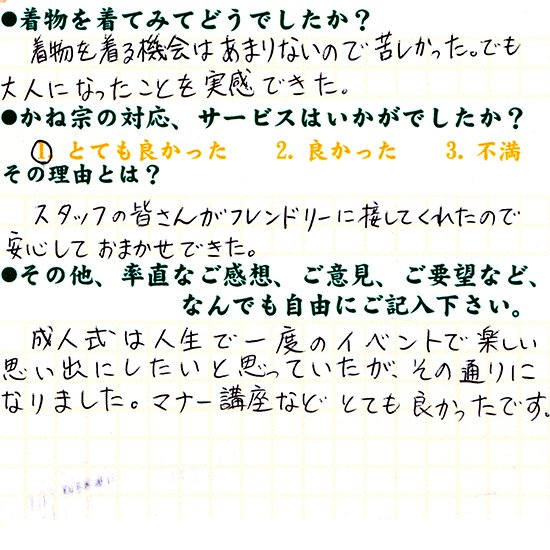 ●着物を着てみてどうでしたか？
着物を着る機会はあまりないので苦しかった。でも
大人になったことを実感できた。
●かね宗の対応、サービスはいかがでしたか？
1. とても良かった　2. 良かった　3. 不満
その理由とは？
スタッフの皆さんがフレンドリーに接してくれたので
安心しておまかせできた。
●その他、率直なご感想、ご意見、ご要望など、
なんでも自由にご記入下さい。
成人式は人生で一度のイベントで楽しい
思い出にしたいと思っていたが、その通りに
なりました。マナー講座など とても良かったです。